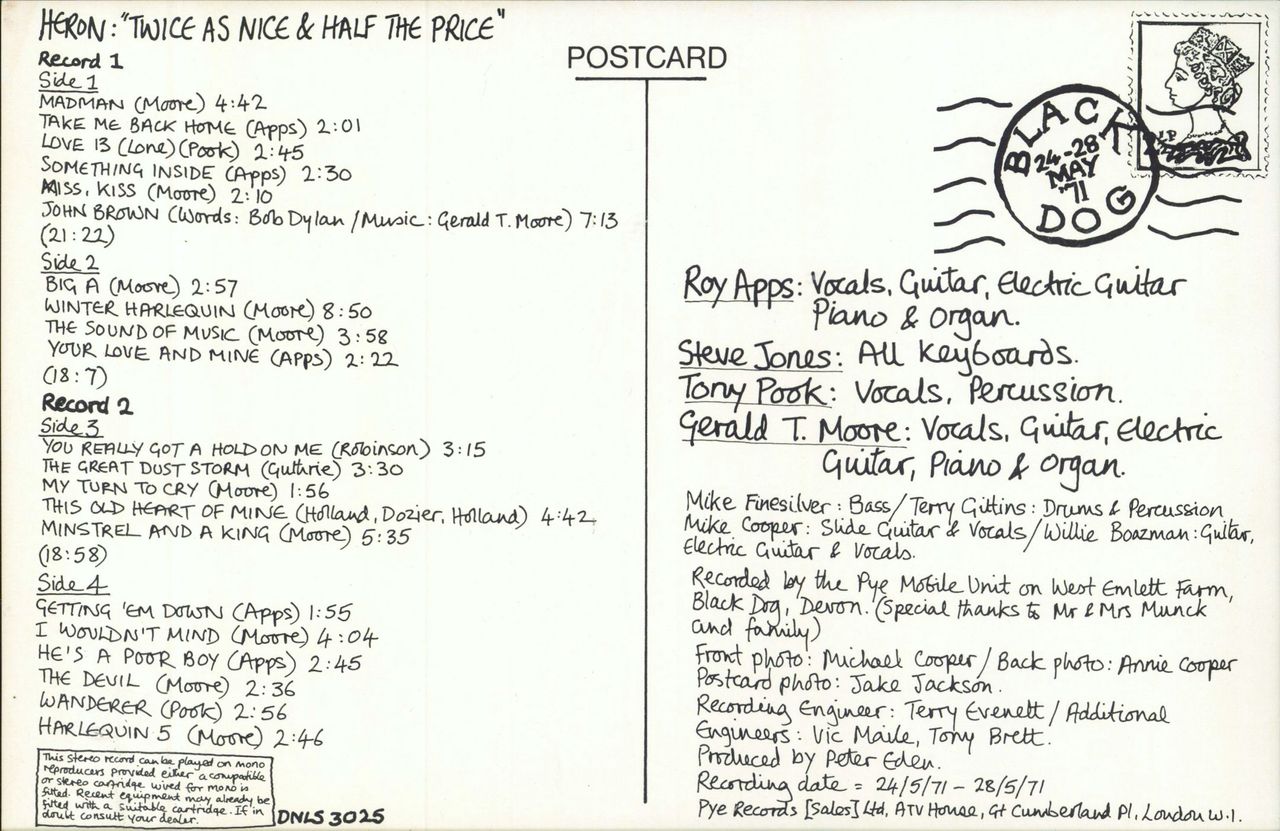 HERON: "TWICE AS NICE & HALF THE PRICE"
Record 1
Side 1
MADMAN (Moore) 4:42
TAKE ME BACK HOME (Apps) 2:01
LOVE 13 (Lone) (Pook) 2:45
SOMETHING INSIDE (Apps) 2:30
MISS, KISS (Moore) 2:10
JOHN BROWN (Words: Bob Dylan / Music: Gerald T. Moore) 7:13
(21:22)
Side 2
BIG A (Moore) 2:57
WINTER HARLEQUIN (Moore) 8:50
THE SOUND OF MUSIC (Moore) 3:58
YOUR LOVE AND MINE (Apps) 2:22
(18:7)
Record 2
Side 3
YOU REALLY GOT A HOLD ON ME (Robinson) 3:15
THE GREAT DUST STORM (Guthrie) 3:30
MY TURN TO CRY (Moore) 1:56
THIS OLD HEART OF MINE (Holland, Dozier, Holland) 4:42
MINSTREL AND A KING (Moore) 5:35
(18:58)
Side 4
GETTING 'EM DOWN (Apps) 1:55
I WOULDN'T MIND (Moore) 4:04
HE'S A POOR BOY (Apps) 2:45
THE DEVIL (Moore) 2:36
WANDERER (Pook) 2:56
HARLEQUIN 5 (Moore) 2:46
This Stereo record can be played on mono
reproducers provided either a compatible
or stereo cartridge wired for mono is
fitted. Recent equipment may already be
fitted with a suitable cartridge. If in
doubt consult your dealer.
DNLS 3025
POSTCARD
BLACK
24-28
MAY
'71
DOG
Roy Apps: Vocals, Guitar, Electric Guitar
Piano & Organ.
Steve Jones: All Keyboards.
Tony Pook: Vocals, Percussion.
Gerald T. Moore: Vocals, Guitar, Electric
Guitar, Piano & Organ.
Mike Finesilver: Bass / Terry Gittins: Drums & Percussion
Mike Cooper: Slide Guitar & Vocals / Willie Boazman: Guitar,
Electric Guitar & Vocals.
Recorded by the Pye Mobile Unit on West Emlett Farm,
Black Dog, Devon. (Special thanks to Mr & Mrs Munck
and family)
Front photo: Michael Cooper / Back photo: Annie Cooper
Postcard photo: Jake Jackson.
Recording Engineer: Terry Evenett / Additional
Engineers: Vic Maile, Tony Brett.
Produced by Peter Eden.
Recording date = 24/5/71 - 28/5/71
Pye Records [Sales] Ltd, ATV House, Gt Cumberland Pl, London W.1.